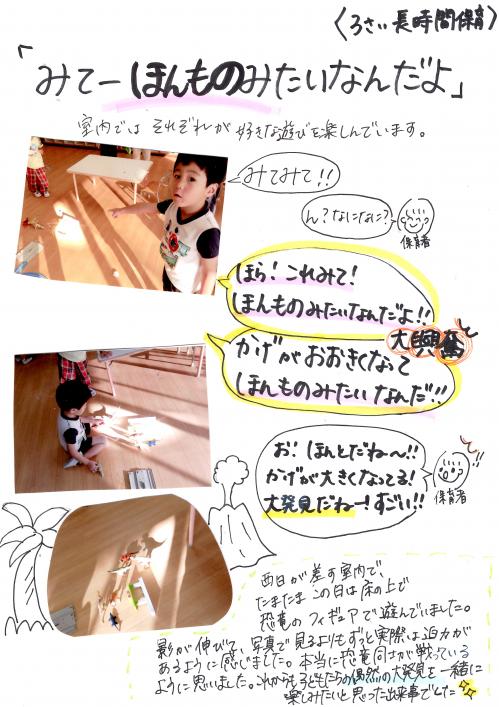 〈3さい長時間保育〉
「みてーほんものみたいなんだよ」
室内では それぞれが 好きな遊びを楽しんでいます。
みてみて!!
ん?なになに?
保育者
ほら! これみて!
ほんものみたいなんだよ!!
大興奮
かげがおおきくなって
ほんものみたいなんだ!!
お! ほんとだね〜!!
かげが大きくなってる!
大発見だねー!すごい!!
保育者
西日が差す室内で、
たまたまこの日は床の上で
恐竜のフィギュアで遊んでいました。
影が伸びて、写真で見るよりもずっと実際は迫力が
あるように感じました。本当に恐竜同士が戦っている
ように思いました。これからも子どもたちの偶然の大発見を一緒に
楽しみたいと思った出来事でした